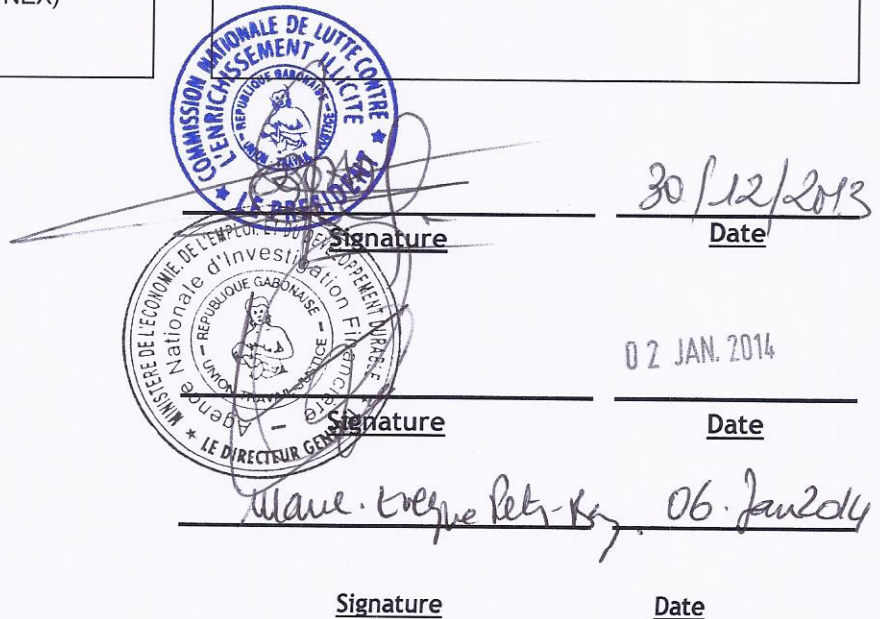 NEX)
COMMISSION NATIONALE DE LUTTE CONTRE
L'ENRICHISSEMENT ILLICITE
REPUBLIQUE GABONAISE
UNION - TRAVAIL - JUSTICE
★ LE PRESIDENT ★
30/12/2013
Signature Date
MINISTERE DE L'ECONOMIE, DE L'EMPLOI ET DU DEVELOPPEMENT DURABLE
Agence Nationale d'Investigation Financière
- REPUBLIQUE GABONAISE -
UNION - TRAVAIL - JUSTICE
★ LE DIRECTEUR GENERAL ★
02 JAN. 2014
Signature Date
06. Jan 2014
Signature Date